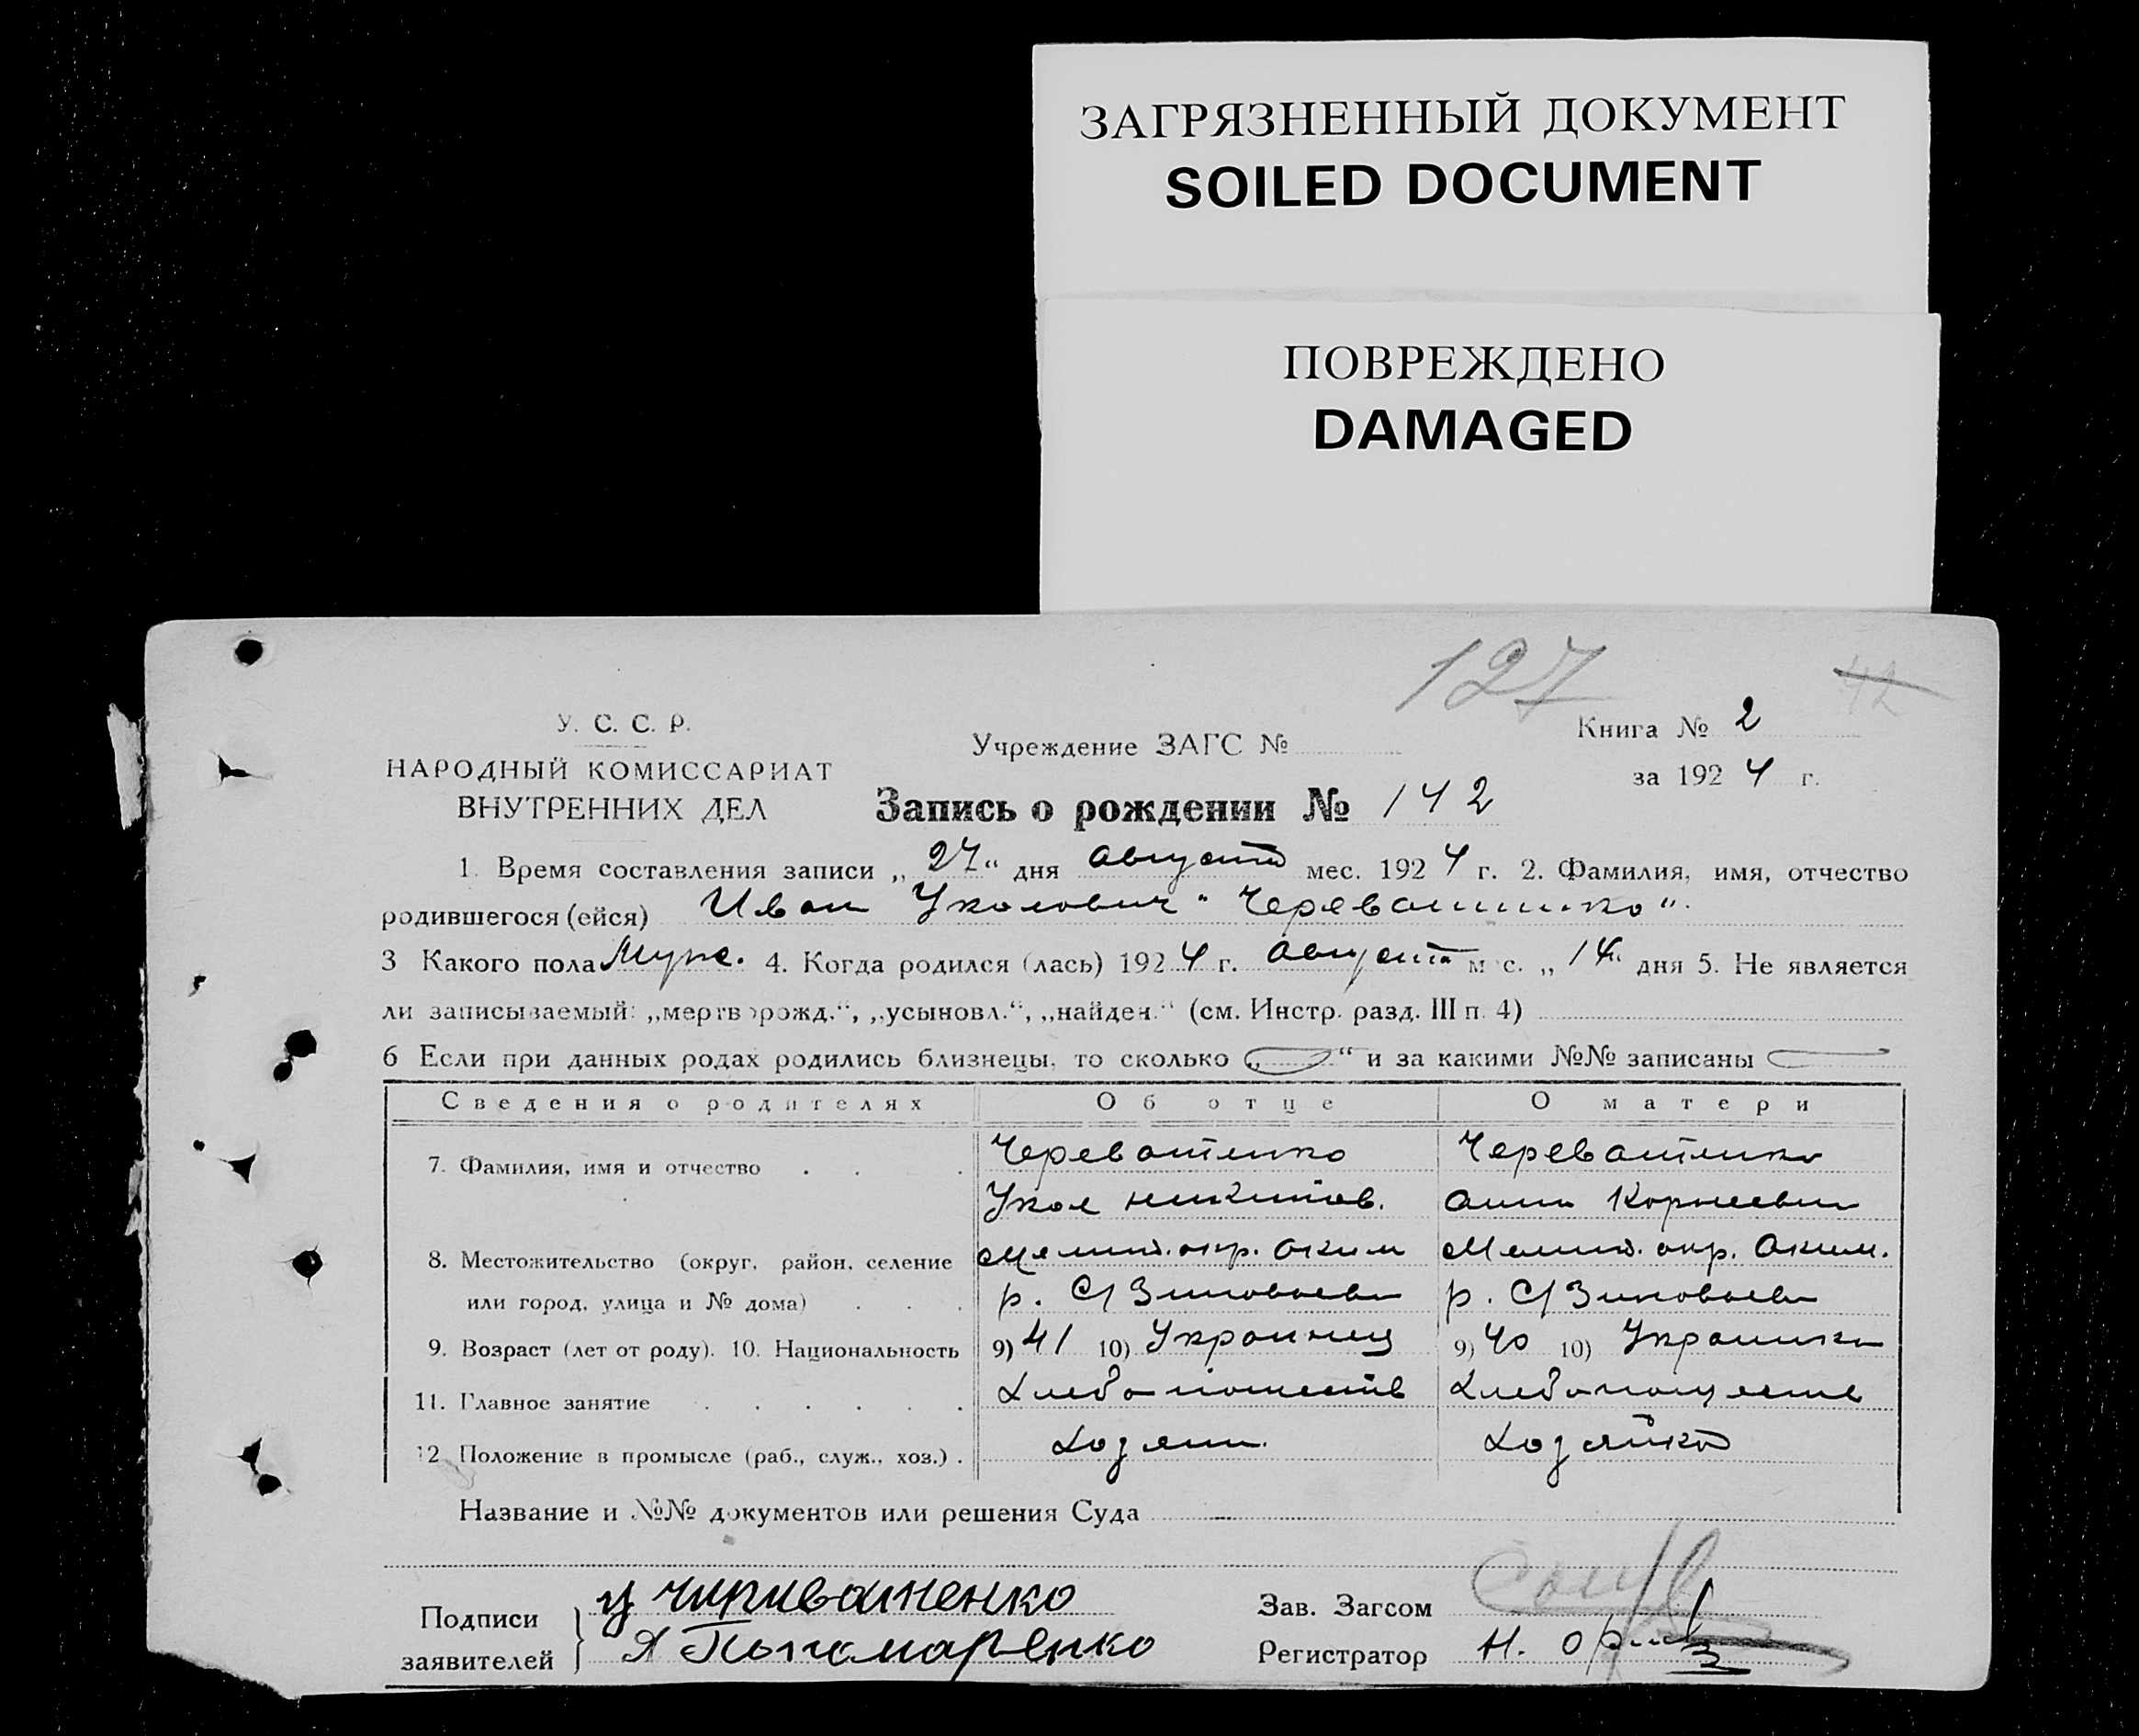 ЗАГРЯЗНЕННЫЙ ДОКУМЕНТ
SOILED DOCUMENT
ПОВРЕЖДЕНО
DAMAGED
127
42
У. С. С. Р.
НАРОДНЫЙ КОМИССАРИАТ
ВНУТРЕННИХ ДЕЛ
Учреждение ЗАГС №
Книга № 2
за 1924 г.
Запись о рождении № 142
1. Время составления записи „27“ дня августа мес. 1924 г. 2. Фамилия, имя, отчество
родившегося (ейся) Иван Уколович "Череватенко".
3 Какого пола Муж. 4. Когда родился (лась) 1924 г. августа м с. „14 дня 5. Не является
ли записываемый: „мертворожд.“, „усыновл.“, „найден.“ (см. Инстр. разд. III п. 4)
6 Если при данных родах родились близнецы, то сколько „ “ и за какими №№ записаны
Сведения о родителях Об отце О матери
7. Фамилия, имя и отчество . . . Череватенко Череватенко
Укол никитов. анна Корнеевн
8. Местожительство (округ, район, селение Мелит. окр. Аким Мелит. окр. Аким.
или город, улица и № дома) . . . р. С/Зиновьево р. С/Зиновьево
9. Возраст (лет от роду). 10. Национальность 9) 41 10) Украинец 9) 40 10) Украинка
11. Главное занятие . . . . . . Хлебопашеств Хлебопашеств
12 Положение в промысле (раб., служ., хоз.) . Хозяин. Хозяйка
Название и №№ документов или решения Суда
Подписи
заявителей
У Чириватненко
Я Пономаренко
Зав. Загсом
Регистратор Н.